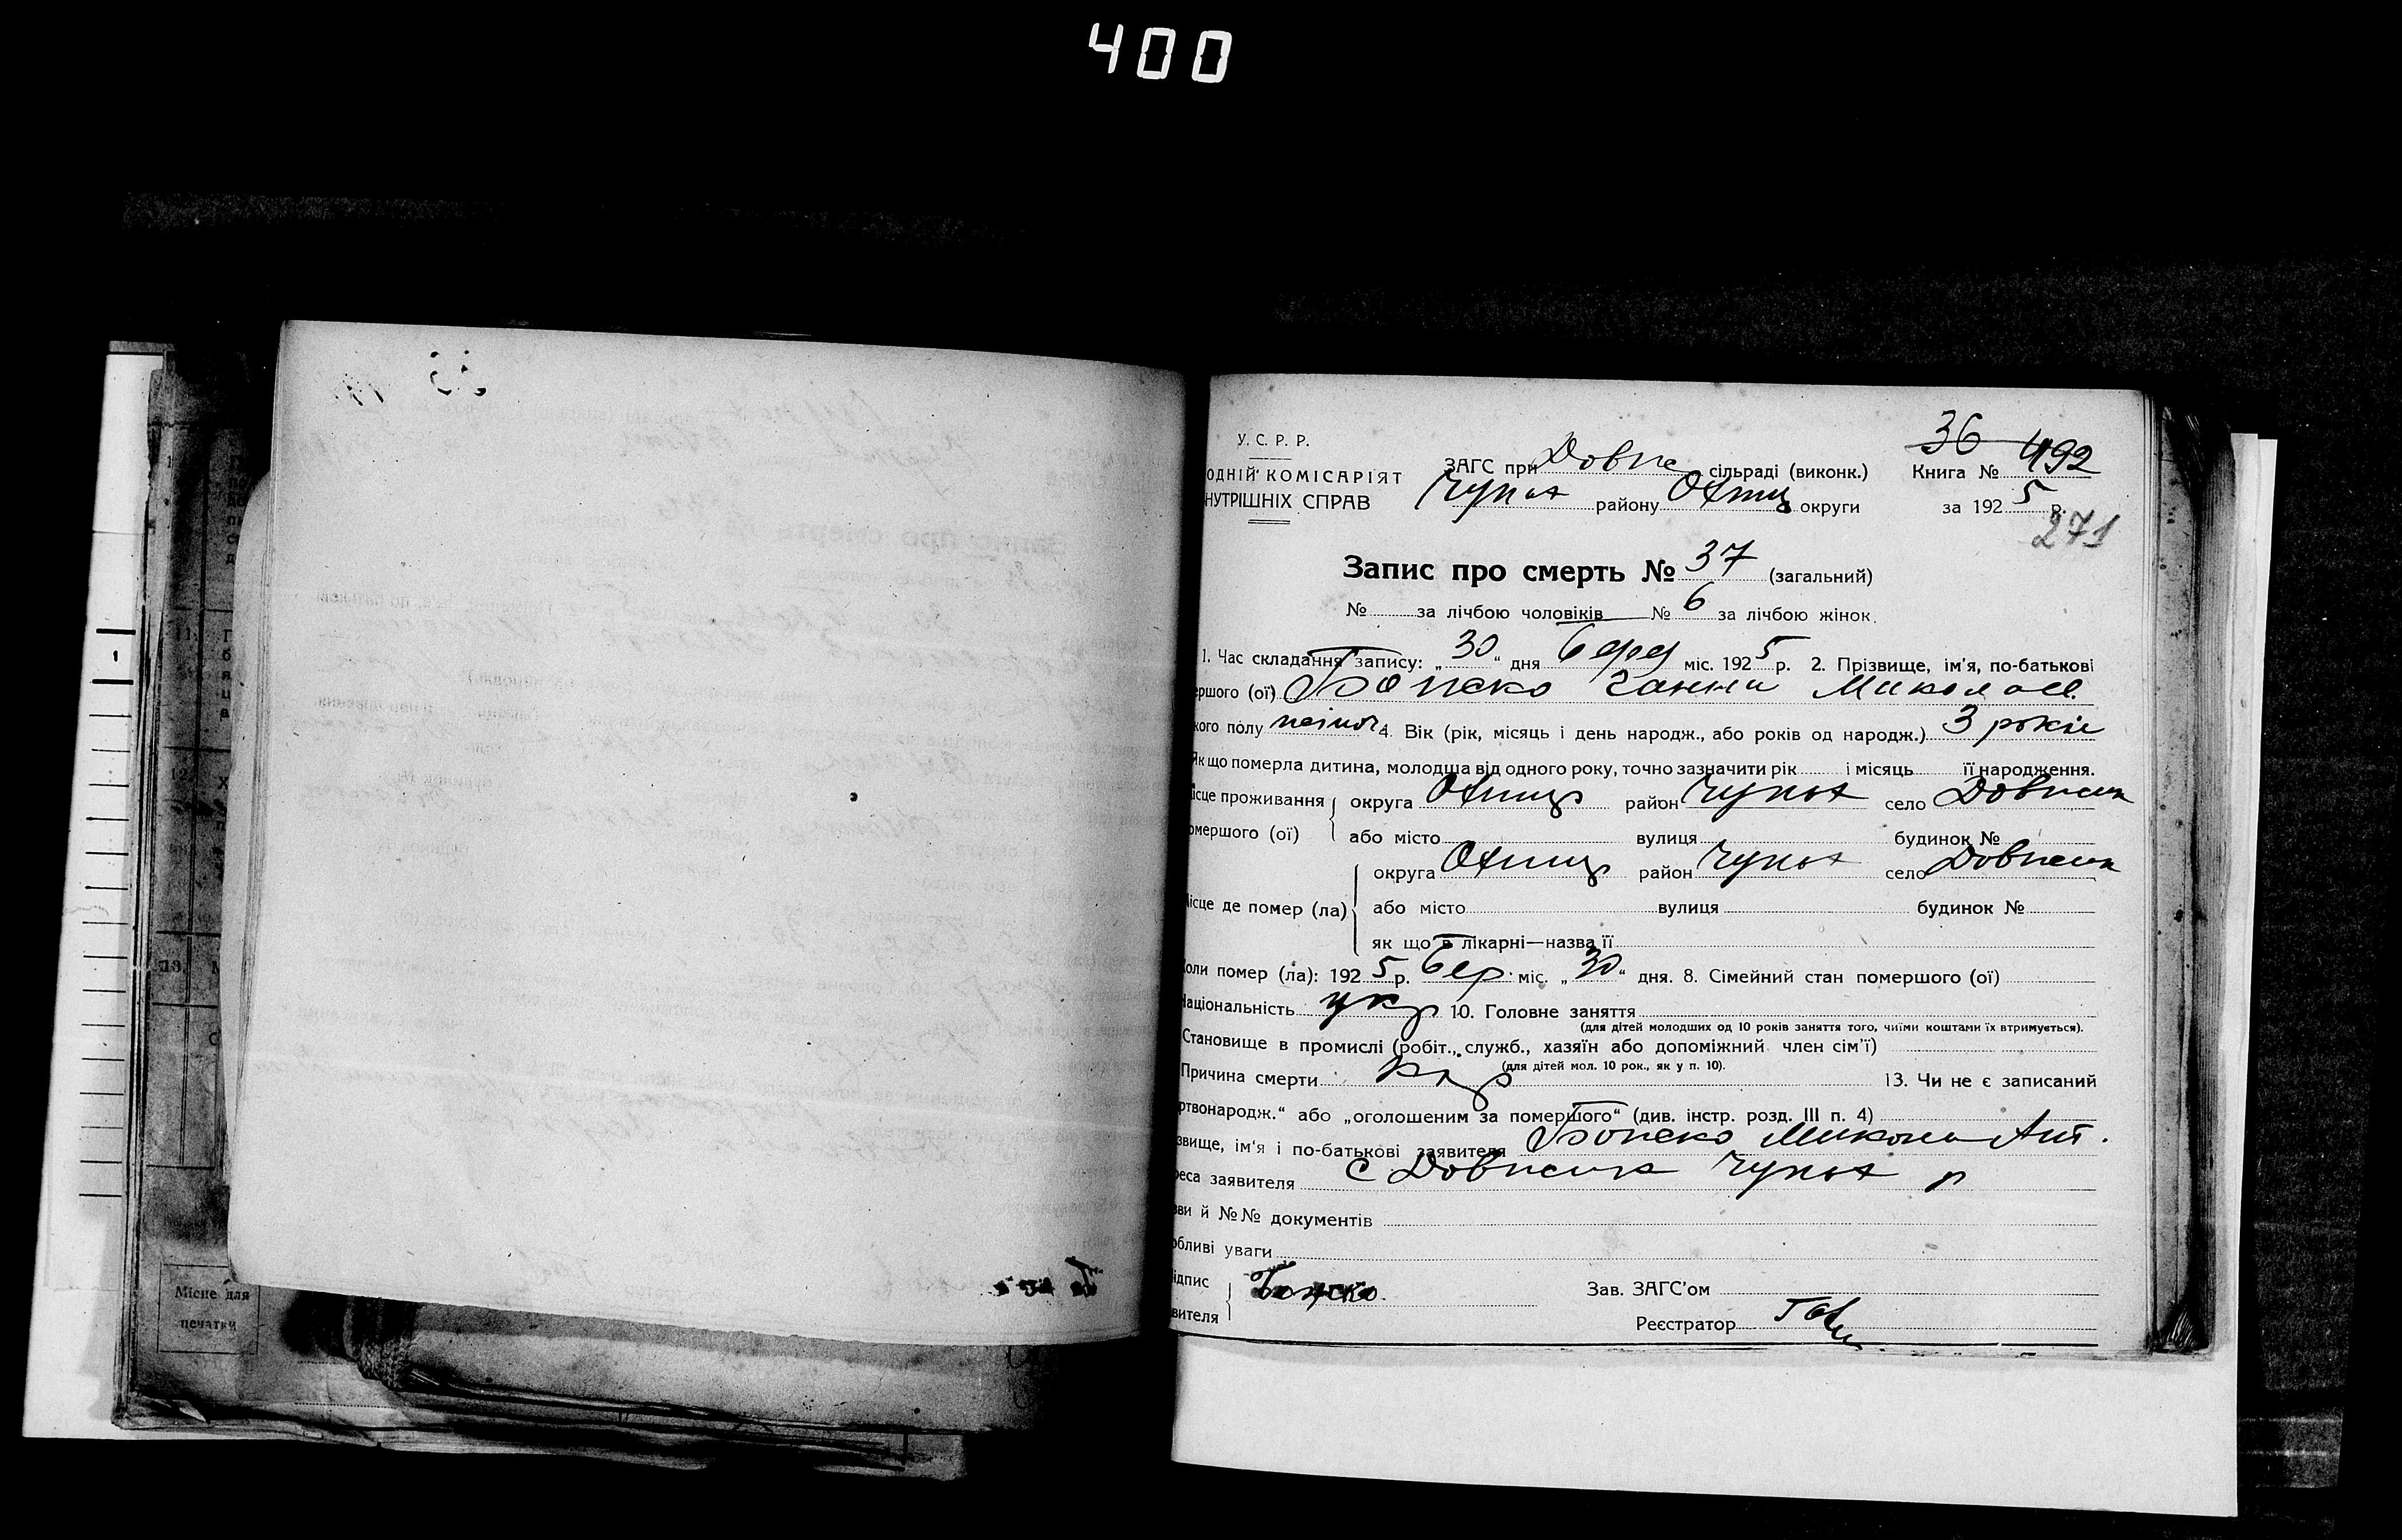 400
36 492
У. С. Р. Р.
ОДНІЙ КОМІСАРІЯТ
НУТРІШНІХ СПРАВ
ЗАГС при Довпе сільраді (виконк.)
Чупах району Охтиц округи
Книга №
за 1925 р.
271
Запис про смерть № 37 (загальний)
№ за лічбою чоловіків № 6 за лічбою жінок.
1. Час складання запису: „30“ дня міс. 1925 р. 2. Прізвище, ім'я, по-батькові
ершого (ої) Ганни Миколаєв.
кого полу жіноч 4. Вік (рік, місяць і день народж., або років од народж.) 3 років
Як що померла дитина, молодша від одного року, точно зазначити рік і місяць її народження.
ісце проживання округа район Чупах село
омершого (ої) або місто вулиця будинок №
округа район Чупах село
ісце де помер (ла) або місто вулиця будинок №
як що в лікарні—назва її
оли помер (ла): 1925 р. бер. міс. „30“ дня. 8. Сімейний стан помершого (ої)
Національність укр 10. Головне заняття
(для дітей молодших од 10 років заняття того, чиїми коштами їх втримується).
Становище в промислі (робіт., служб., хазяїн або допоміжний член сім'ї)
(для дітей мол. 10 рок., як у п. 10).
Причина смерти кір 13. Чи не є записаний
ртвонародж.“ або „оголошеним за помершого“ (див. інстр. розд. III п. 4)
звище, ім'я і по-батькові заявителя Микола Ант.
реса заявителя с Чупах р
зви й №№ документів
обливі уваги
ідпис
вителя
Зав. ЗАГС'ом
Реєстратор
Місце для
печатки